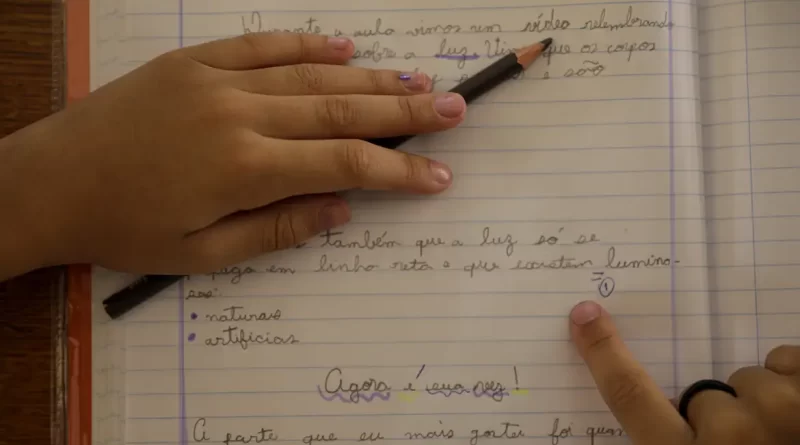 Durante a aula vimos um vídeo relembrando
sobre a luz. Vim que os corpos
e são
também que a luz só se
paga em linha reta e que existem lumino-
sos:
• naturais
• artificias
1
Agora é sua vez!
A parte que eu mais gostei foi quan